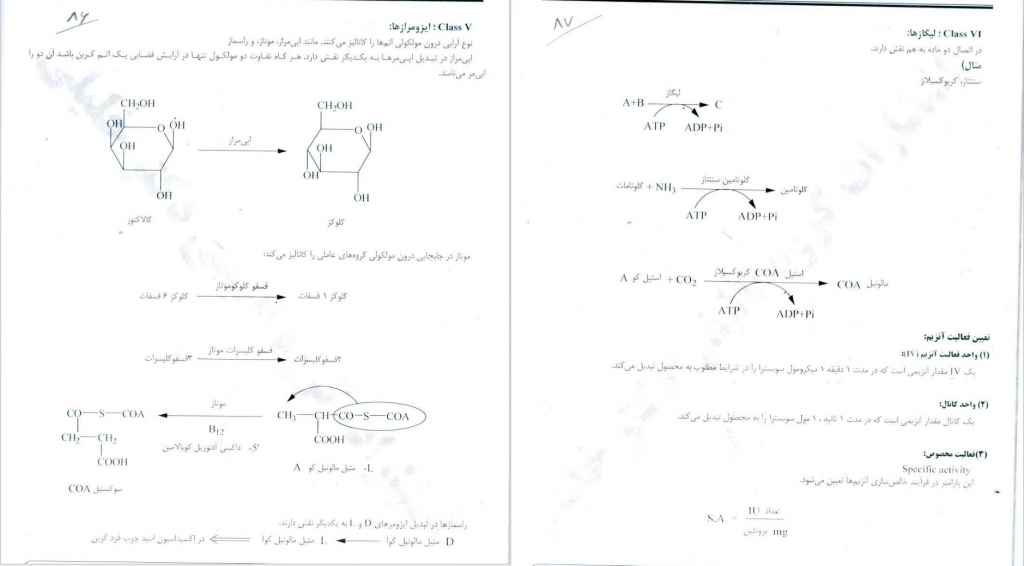 ۸۶
Class V : ایزومرازها:
نوع آرایی درون مولکولی اتم‌ها را کاتالیز می‌کنند. مانند اپی‌مراز، موتاز، و راسماز
اپی‌مراز در تبدیل اپی‌مرها به یکدیگر نقش دارد. هر گاه تفاوت دو مولکول تنها در آرایش فضایی یک اتم کربن باشد آن دو را
اپی‌مر می‌نامند.
CH₂OH
CH₂OH
OH
O
OH
اپی‌مراز
O
OH
OH
OH
OH
OH
OH
گالاکتوز
گلوکز
موتاز در جابجایی درون مولکولی گروه‌های عاملی را کاتالیز می‌کند:
گلوکز ۶ فسفات
فسفو گلوکوموتاز
گلوکز ۱ فسفات
۳فسفوگلیسرات
فسفو گلیسرات موتاز
۲فسفوگلیسرات
CO—S—COA
موتاز
CH₃—CH—CO—S—COA
B₁₂
CH₂—CH₂
COOH
5'- داکسی آدنوزیل کوبالامین
COOH
L- متیل مالونیل کو A
سوکسنیل COA
راسمازها در تبدیل ایزومرهای D و L به یکدیگر نقش دارند.
D متیل مالونیل کوآ
L متیل مالونیل کوآ
در اکسیداسیون اسید چرب فرد کربن
۸۷
Class VI : لیگازها:
در اتصال دو ماده به هم نقش دارند.
مثال)
سنتتاز، کربوکسیلاز
A+B
لیگاز
C
ATP
ADP+Pi
گلوتامات + NH₃
گلوتامین سنتتاز
گلوتامین
ATP
ADP+Pi
استیل کو A + CO₂
استیل COA کربوکسیلاز
مالونیل COA
ATP
ADP+Pi
تعیین فعالیت آنزیم:
(۱) واحد فعالیت آنزیم (IV):
یک IV مقدار آنزیمی است که در مدت ۱ دقیقه ۱ میکرومول سوبسترا را در شرایط مطلوب به محصول تبدیل می‌کند.
(۲) واحد کاتال:
یک کاتال مقدار آنزیمی است که در مدت ۱ ثانیه ، ۱ مول سوبسترا را به محصول تبدیل می‌کند.
(۳)فعالیت مخصوص:
Specific activity
این پارامتر در فرآیند خالص‌سازی آنزیم‌ها تعیین می‌شود.
S.A = تعداد IU
mg پروتئین